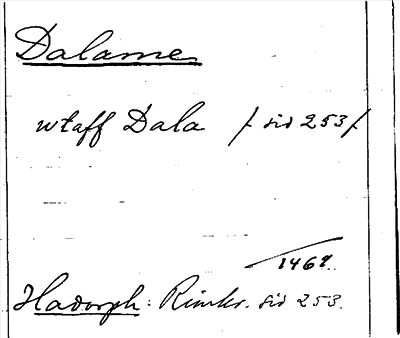 Dalarne
wtaff Dala / sid 253 /
1467.
Hadorph: Rimkr. sid 253.